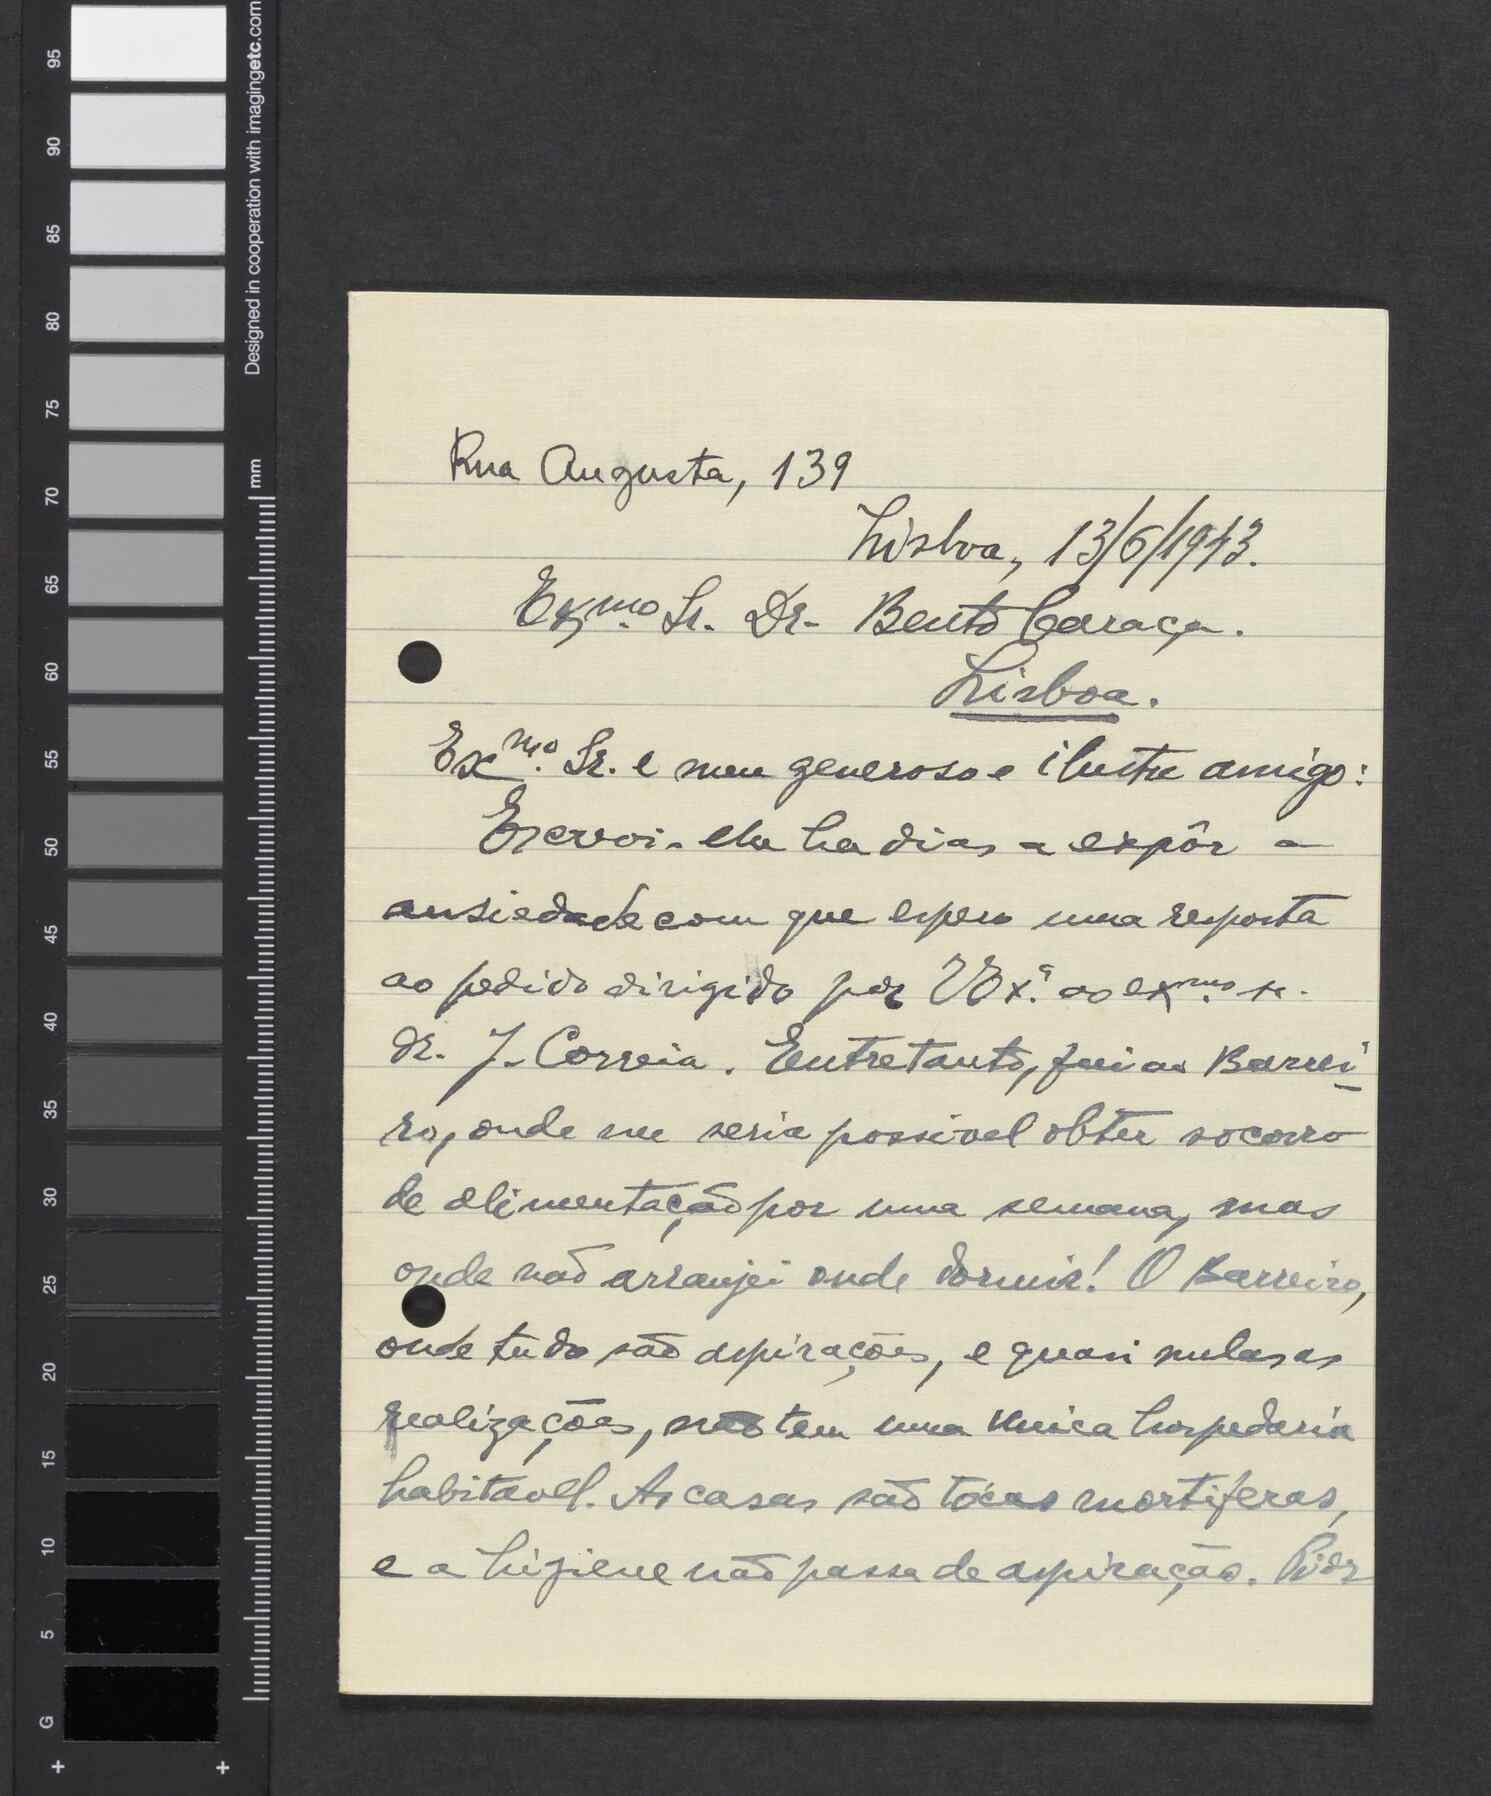 Designed in cooperation with imagingetc.com
mm
95
90
85
80
75
70
65
60
55
50
45
40
35
30
25
20
15
10
5
G
Rua Augusta, 139
Lisboa, 13/6/1943.
Exmo. Sr. Dr. Bento Caraça.
Lisboa.
Exmo. Sr. e meu generoso e ilustre amigo:
Escrevi-lhe ha dias a expôr a
ansiedade com que espero uma resposta
ao pedido dirigido por VExª. ao exmo. sr.
dr. J. Correia. Entretanto, fui ao Barrei
ro, onde me seria possivel obter socorro
de alimentação por uma semana, mas
onde não arranjei onde dormir! O Barreiro,
onde tudo são aspirações, e quasi nulas as
realizações, não tem uma unica hospedaria
habitavel. As casas são tócas mortiferas,
e a higiene não passa de aspiração. Piór